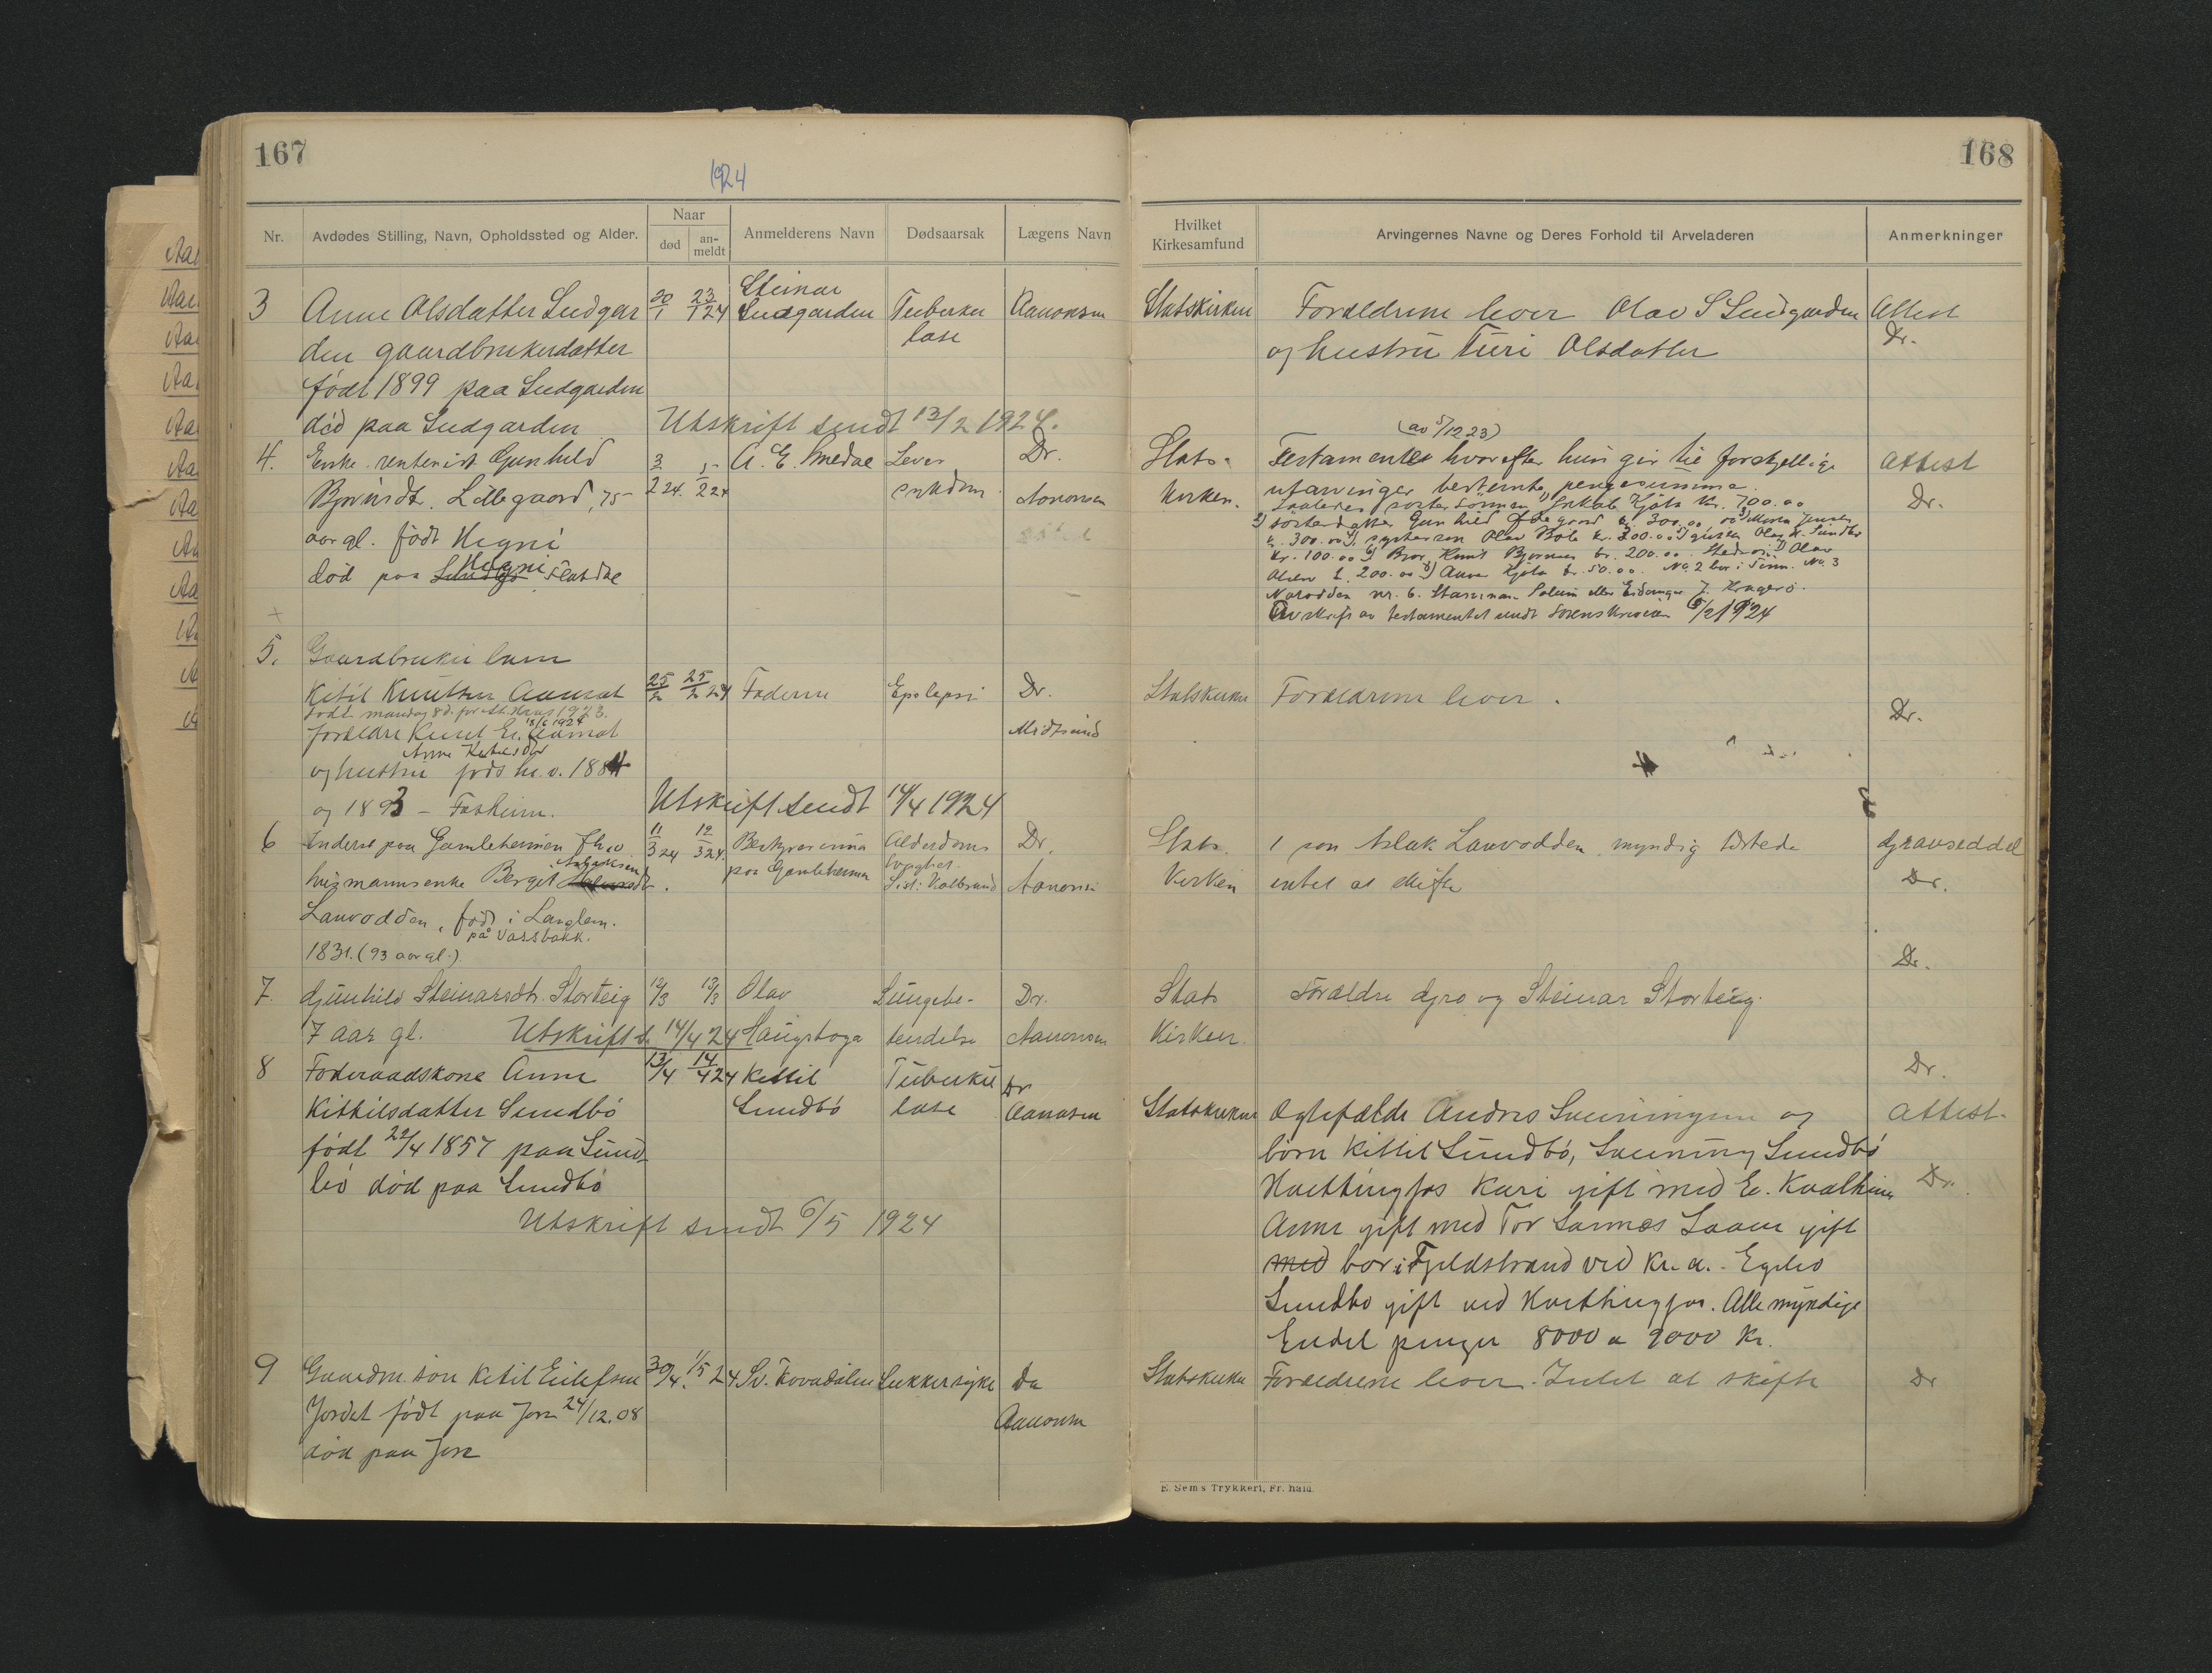 167
1924
Nr.
Avdødes Stilling, Navn, Opholdssted og Alder.
Naar
død
an-
meldt
Anmelderens Navn
Dødsaarsak
Lægens Navn
3
Anne Olsdatter Sudgar
den gaardbrukerdatter
født 1899 paa Sudgarden
død paa Sudgarden
20/1
23/1 24
Steinar
Sudgarden
Tuberku
lose
Aanonsen
Utskrift sendt 13/2 1924.
4.
Enke rentenist Gunhild
Lillegaard, 75
aar gl. født Hegni
død paa Hegni
3/2 24.
5/2 24
Lever
sykdom
Dr.
Aanonsen
5.
Gaardbruker barn
Ketil Knutsen Aamot
født mandag 8 d. før St. Hans 1923.
13/6 1924
foreldre Knut Aamot
og hustru føds h.v. 1884
og 1893
25/2
25/2 24
Faderen
Epelepsi
Dr.
Midtsund
Utskrift sendt 14/4 1924
6
Inderst paa Gamleheimen
husmannsenke Bergit
Lauvodden, født i
på Vassbakk.
1831. (93 aar gl.)
11/3 24
12/3 24.
Bestyrerinna
paa Gamleheimen
Alderdoms
svaghet.
Sist: Kolbrand
Dr.
Aanonsen
7.
Gunhild Steinarsdtr. Storteig
17 aar gl.
Utskrift s. 14/4 24
12/3
13/3
Olav
Haugstoga
Lungebe-
tendelse
Dr.
Aanonsen
8
Føderaadskone Anne
Kittilsdatter Sundbö
født 22/4 1857 paa Sund-
bö død paa Sundbö
13/4
14/4 24
Kittil
Sundbö
Tuberku
lose
Dr
Aanonsen
Utskrift sendt 6/5 1924
9
Gaardm. sön Ketil Eilefsen
Jordet født paa Jore 24/12.08
død paa Jore
30/4.
1/5 24
Sv. Kovadalen
Sukkersyke
Aanonsen
168
Hvilket
Kirkesamfund
Arvingernes Navne og Deres Forhold til Arveladeren
Anmerkninger
Statskirken
Foreldrene lever Olav S Sudgarden
og hustru Turi Olsdatter
Attest
Dr.
(av 5/12 23)
Stats-
kirken.
Testamente hvorefter hun gir til forskjellige
utarvinger bestemte pengesumme.
Saaledes søstersönnen Kjøta kr. 700.00
søsterdatter Gunhild kr. 300.00
kr. 300.00 systerson Olav Böle kr. 300.00
kr. 100.00 Bror Knut kr. 200.00 Olav
200.00 Anne Kjøta kr. 50.00. No. 2 bor i No. 3
Notodden nr. 6.
Avskrift av testamentet sendt Sorenskriveren 5/2 1924
Attest
Dr.
Statskirken
Foreldrene lever.
Dr.
Stats
Kirken
1 son Aslak Lauvodden, myndig tilstede
intet at skifte
Gravseddel
Dr.
Dr.
Stats
Kirken
Foreldre Gro og Steinar Storteig.
Dr.
Statskirken
Egtefælde Andres Sveinungsen og
börn Kittil Sundbö, Sveinung Sundbö
Kari gift med
Anne gift med Tor gift
med bor i Fjeldstrand ved Kr.a.
Sundbo gift ved Alle myndige
Endel penger 8000 a 9000 Kr.
Attest.
Dr.
Statskirken
Foreldrene lever. Intet at skifte
Dr
E. Sem's Trykkeri, Fr.hald.